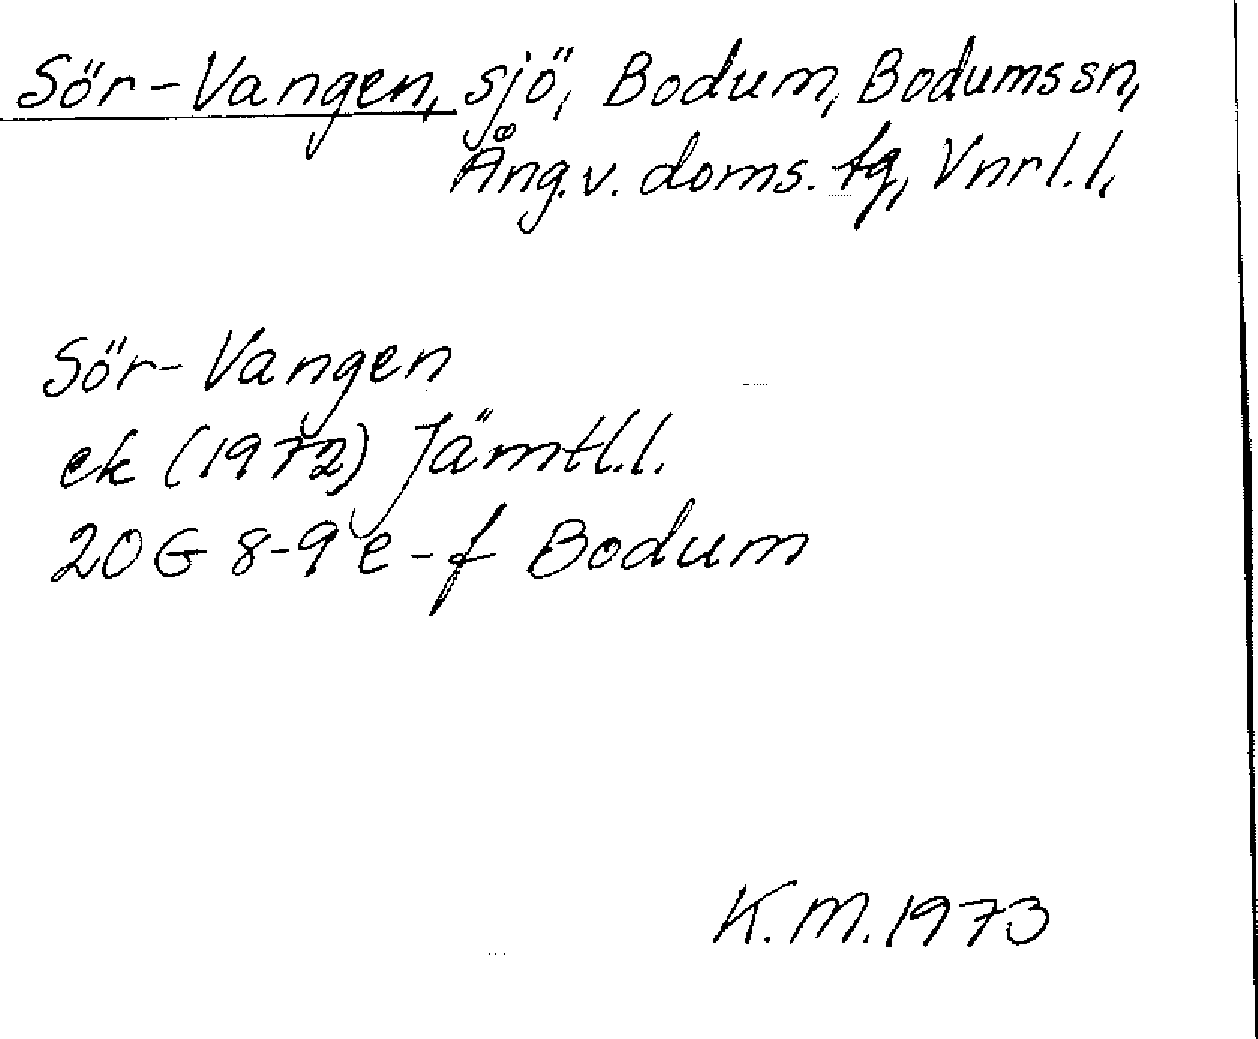 Sör-Vangen, sjö, Bodum, Bodums sn,
Ång.v. doms. tg, Vnrl.l.
Sör-Vangen
ek (1972) Jämtl.l.
20G 8-9 e-f Bodum
K.M. 1973